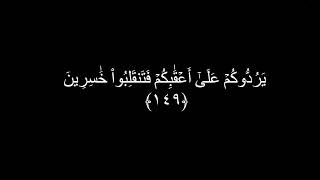 يَرُدُّوكُمۡ عَلَىٰٓ أَعۡقَٰبِكُمۡ فَتَنقَلِبُواْ خَٰسِرِينَ
﴿١٤٩﴾